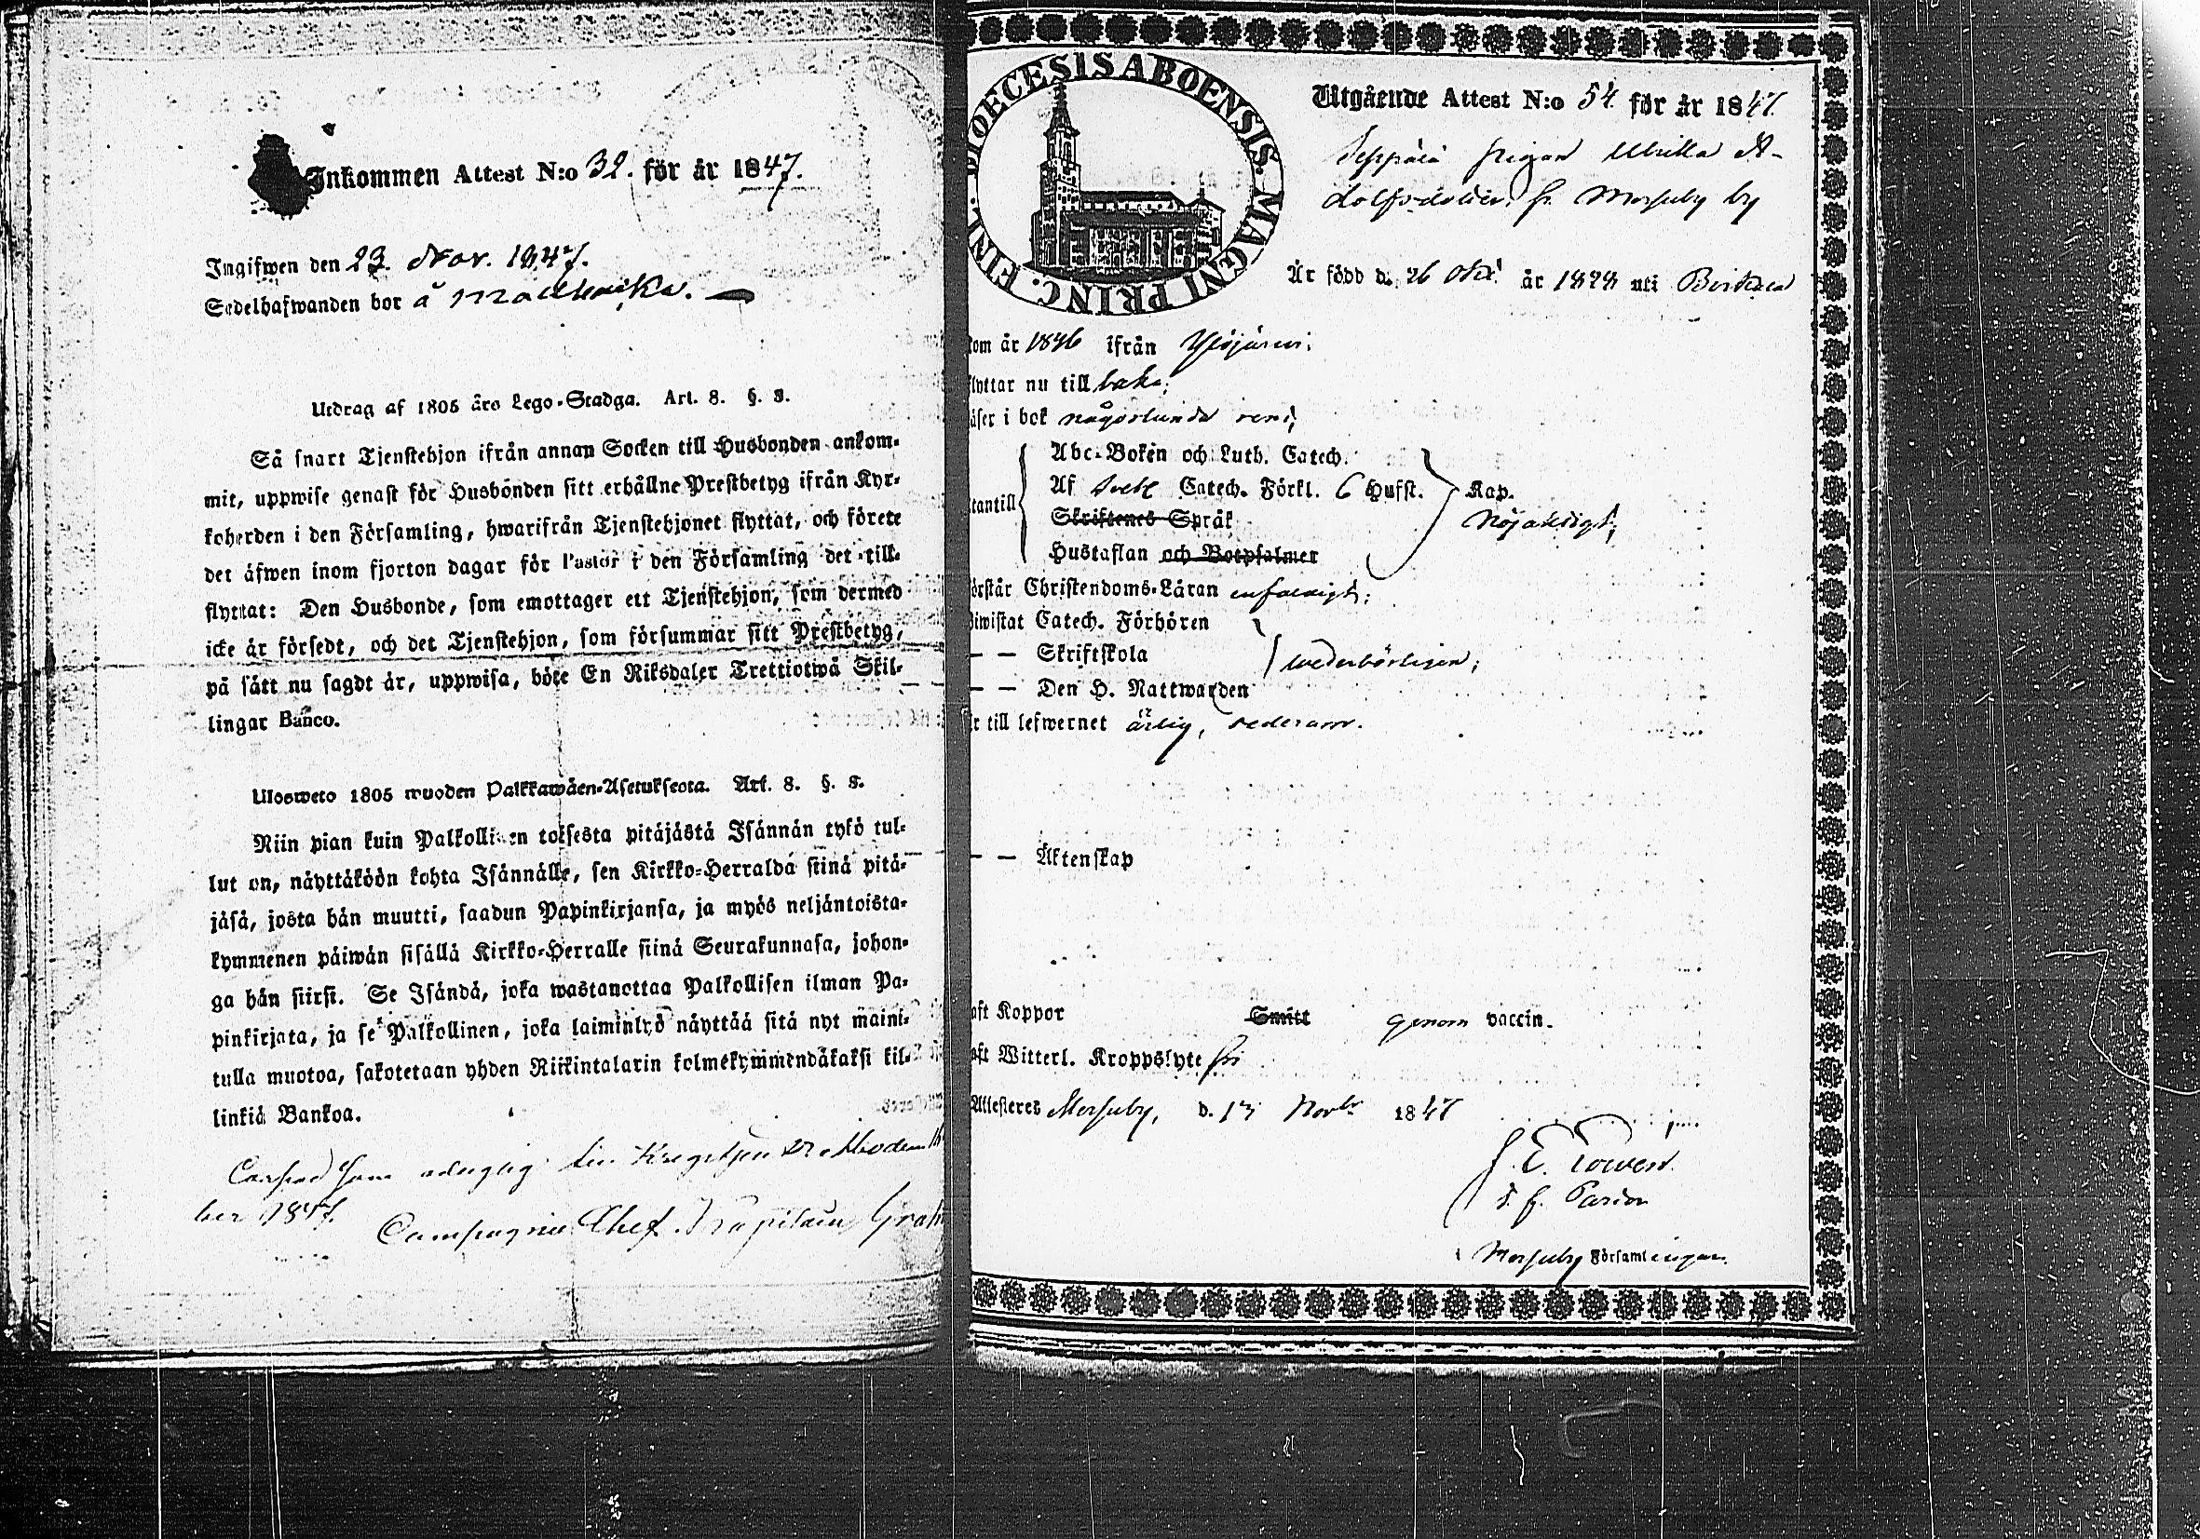 Inkommen Attest N:o 32. för år 1847.
Ingifwen den 23. Nov. 1847.
Sedelhafwanden bor å
Utdrag af 1805 års Lego-Stadga. Art. 8. §. 3.
Så snart Tjenstehjon ifrån annan Socken till Husbonden ankom-
mit, uppwise genast för Husbonden sitt erhållne Prestbetyg ifrån Kyr-
koherden i den Församling, hwarifrån Tjenstehjonet flyttat, och förete
det äfwen inom fjorton dagar för Pastor i den Församling det till-
flyttat: Den Husbonde, som emottager ett Tjenstehjon, som dermed
icke är försedt, och det Tjenstehjon, som försummar sitt Prestbetyg,
på sätt nu sagdt är, uppwisa, böte En Riksdaler Trettiotwå Skil-
lingar Banco.
Ulosweto 1805 wuoden Palkkawäen-Asetuksesta. Art. 8. §. 3.
Niin pian kuin Palkollinen toisesta pitäjästä Isännän tykö tul-
lut on, näyttäköön kohta Isännälle, sen Kirkko-Herralda siinä pitä-
jäsä, josta hän muutti, saadun Papinkirjansa, ja myös neljäntoista-
kymmenen päiwän sisällä Kirkko-Herralle siinä Seurakunnasa, johon-
ga hän siirsi. Se Isändä, joka wastanottaa Palkollisen ilman Pa-
pinkirjata, ja se Palkollinen, joka laiminlyö näyttää sitä nyt maini-
tulla muotoa, sakotetaan yhden Riikintalarin kolmekymmendäkaksi kil-
linkiä Bankoa.
ber 1847.
Compagnie Chef. Kapitain
DIOECESIS ABOENSIS. MAGNI PRINC. FINL.
Utgående Attest N:o 54. för år 1847.
Seppälä pigan Ulrika A-
dolfsdotter, fr. Messuby by
Är född d. 26 Okt. år 1828 uti Birkala
kom år 1846 ifrån Ylöjärvi;
flyttar nu till baka;
läser i bok någorlunda rent;
Abc-Boken och Luth. Catech.
Af Sveb. Catech. Förkl. 6 Hufst. Kap.
utantill
Skriftenes Språk nöjaktigt;
Hustaflan och Botpsalmer
förstår Christendoms-Läran enfaldigt;
biwistat Catech. Förhören
— — Skriftskola wederbörligen;
— — Den H. Nattwarden
är till lefwernet ärlig, sedesam.
— — Äktenskap
haft Koppor Smitt genom vaccin.
haft Witterl. Kroppslyte fri
Attesteras Messuby, d. 13 Novbr 1847
i Messuby Församlingar.